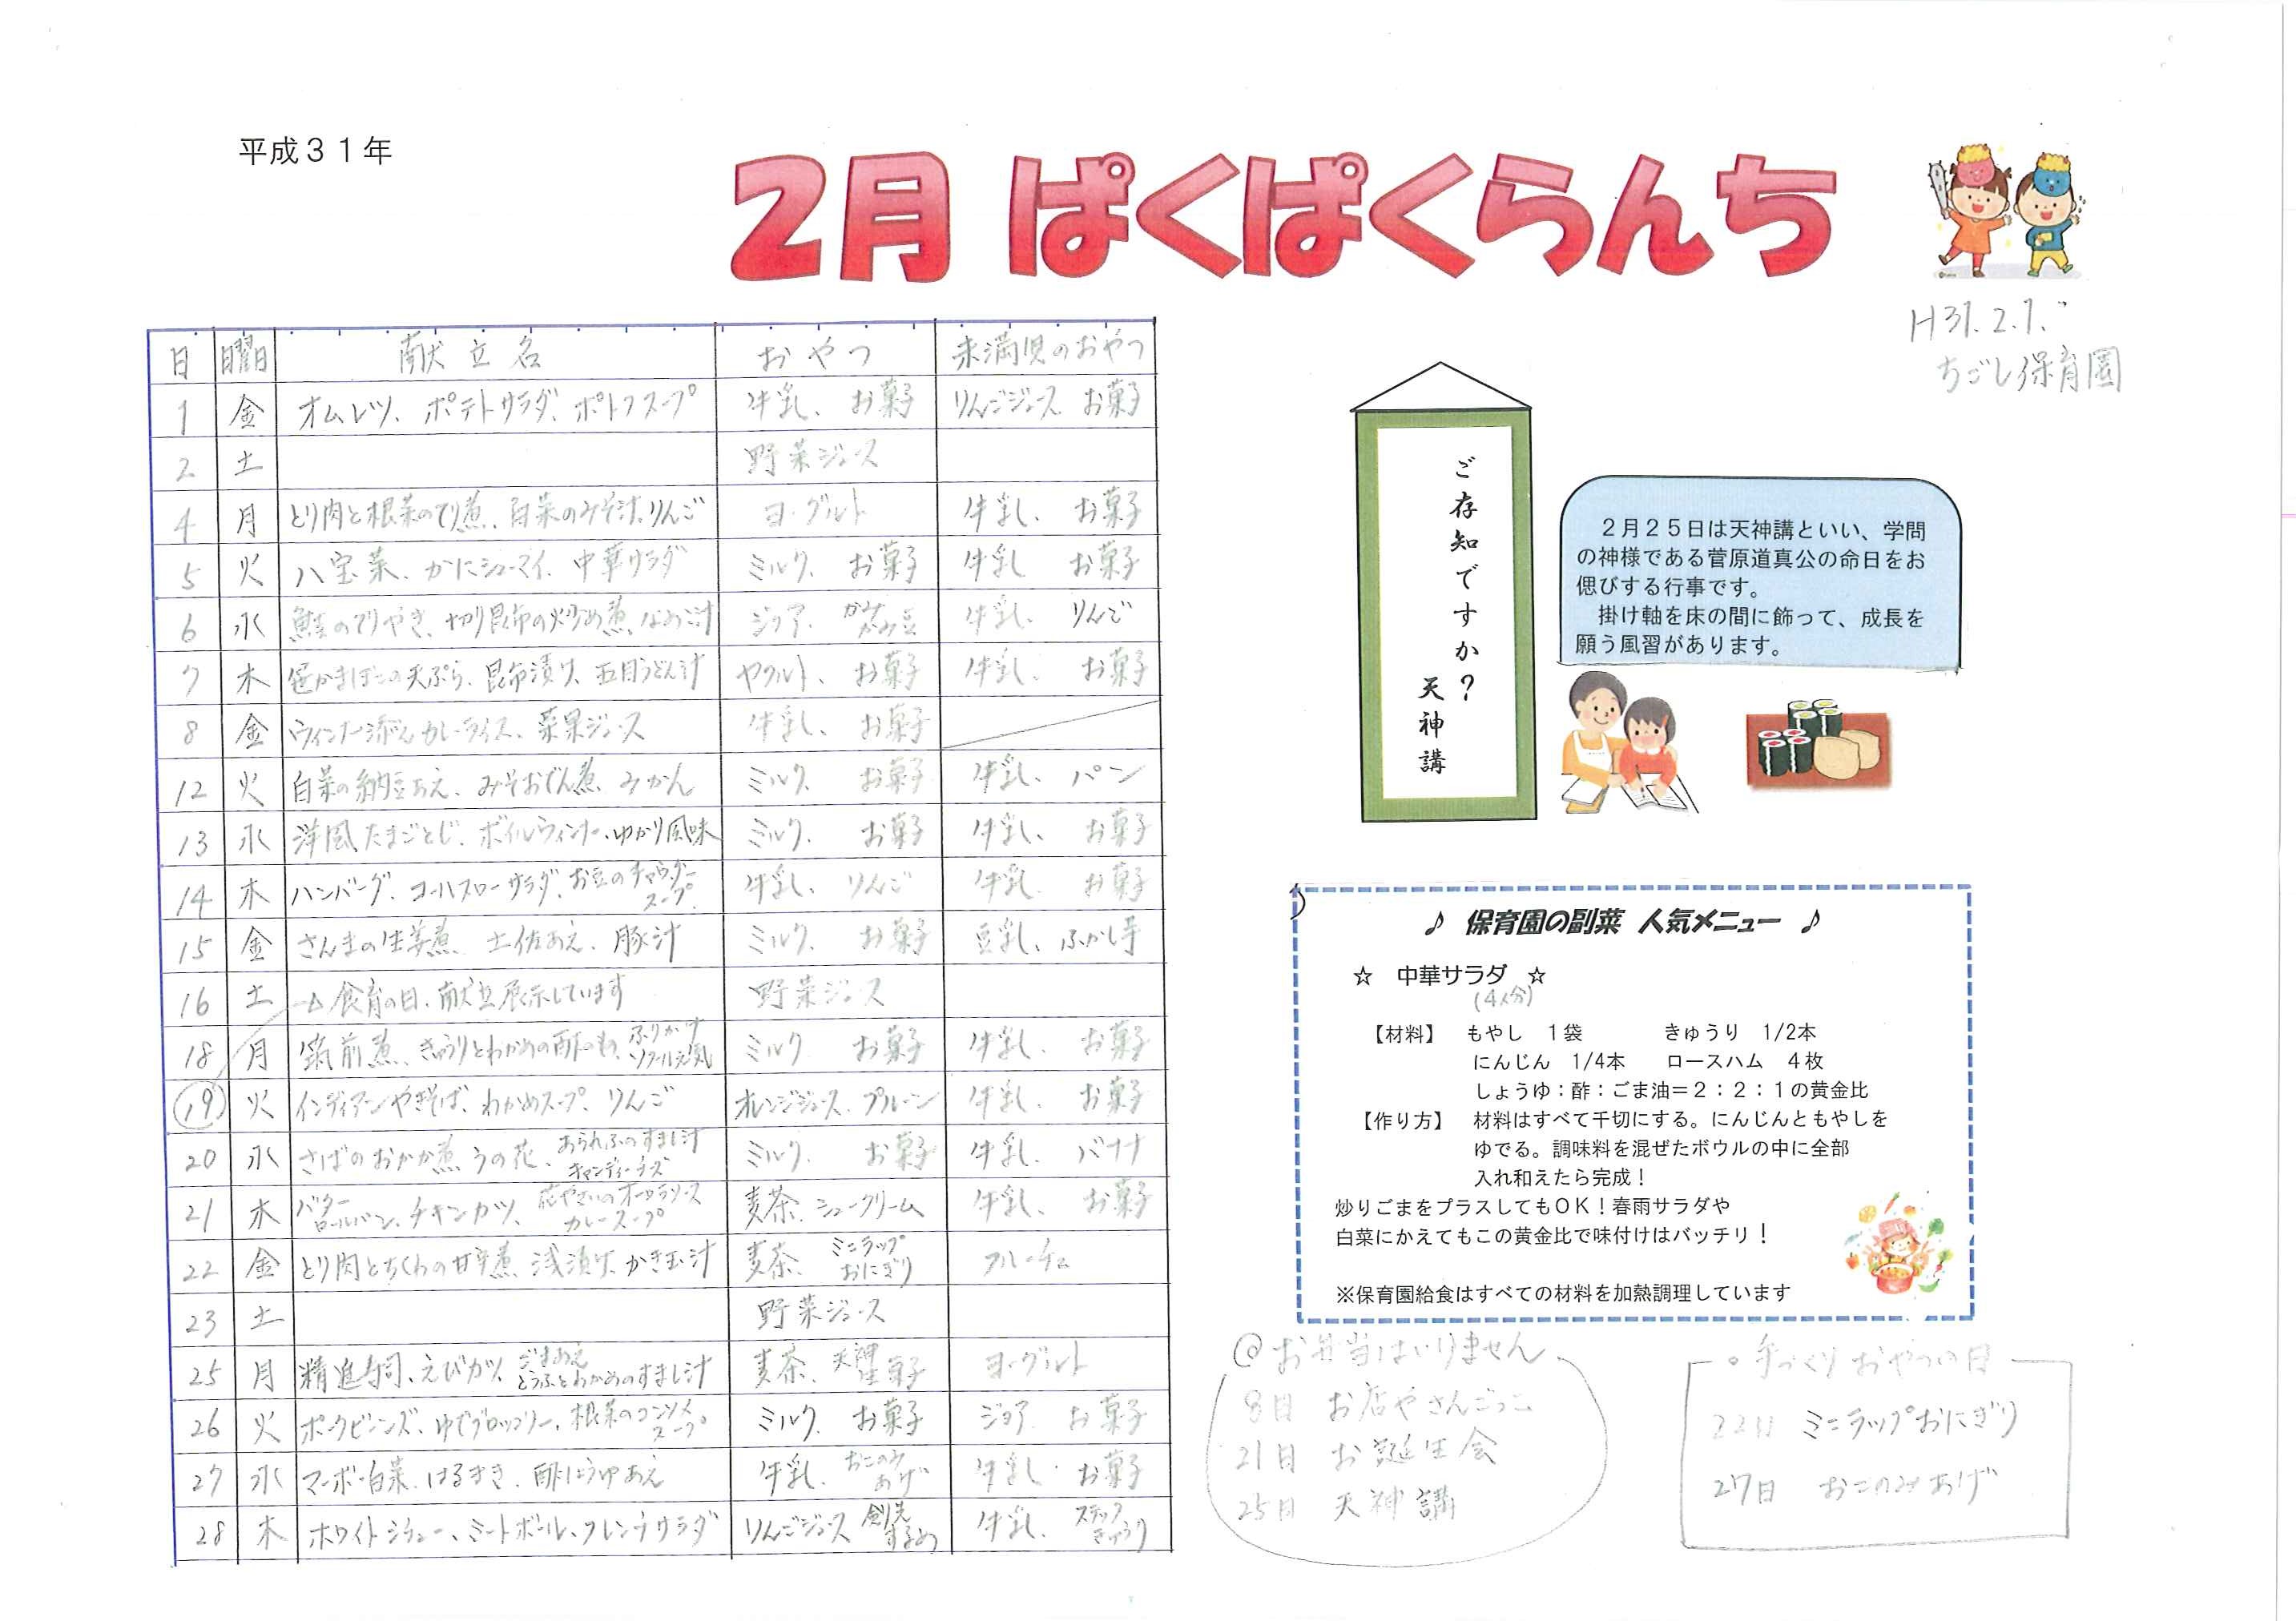 平成31年
2月 ぱくぱくらんち
H31.2.1.
ちごし保育園
日 曜日 献立名 おやつ 未満児のおやつ
1 金 オムレツ、ポテトサラダ、ポトフスープ 牛乳、お菓子 りんごジュース お菓子
2 土 野菜ジュース
4 月 とり肉と根菜のてり煮、白菜のみそ汁、りんご ヨーグルト 牛乳、お菓子
5 火 八宝菜、かにシューマイ、中華サラダ ミルク、お菓子 牛乳 お菓子
6 水 鮭のてりやき、切り昆布の炒め煮、なめこ汁 ジョア、かみかみ豆 牛乳、りんご
7 木 笹かまぼこの天ぷら、昆布漬け、五目うどん汁 ヤクルト、お菓子 牛乳、お菓子
8 金 ウィンナー添えカレーライス、菜果ジュース 牛乳、お菓子
12 火 白菜の納豆あえ、みそおでん煮、みかん ミルク、お菓子 牛乳、パン
13 水 洋風たまごとじ、ボイルウィンナー、ゆかり風味 ミルク、お菓子 牛乳、お菓子
14 木 ハンバーグ、コールスローサラダ、お豆のチャウダースープ 牛乳、りんご 牛乳、お菓子
15 金 さんまの生姜煮、土佐あえ、豚汁 ミルク、お菓子 豆乳、ふかし芋
16 土 食育の日、献立展示しています 野菜ジュース
18 月 筑前煮、きゅうりとわかめの酢のもの、ふりかけ ミルク お菓子 牛乳、お菓子
19 火 インディアンやきそば、わかめスープ、りんご オレンジジュース、プルーン 牛乳、お菓子
20 水 さばのおかか煮 うの花、あられふのすまし汁 キャンディーチーズ ミルク、お菓子 牛乳、バナナ
21 木 バターロールパン、チキンカツ、カレースープ 麦茶、シュークリーム 牛乳、お菓子
22 金 とり肉とちくわの甘辛煮 浅漬け、かき玉汁 麦茶、ミニラップおにぎり フルーチェ
23 土 野菜ジュース
25 月 精進寿司、えびカツ、ごまあえ とうふとわかめのすまし汁 麦茶、天神様菓子 ヨーグルト
26 火 ポークビーンズ、ゆでブロッコリー、根菜のコンソメスープ ミルク、お菓子 ジョア、お菓子
27 水 マーボー白菜、はるまき、酢じょうゆあえ 牛乳、おこのみあげ 牛乳、お菓子
28 木 ホワイトシチュー、ミートボール、フレンチサラダ りんごジュース するめ 牛乳、スティックきゅうり
ご存知ですか?
天神講
2月25日は天神講といい、学問
の神様である菅原道真公の命日をお
偲びする行事です。
掛け軸を床の間に飾って、成長を
願う風習があります。
♪ 保育園の副菜 人気メニュー ♪
☆ 中華サラダ ☆
(4人分)
【材料】 もやし 1袋 きゅうり 1/2本
にんじん 1/4本 ロースハム 4枚
しょうゆ：酢：ごま油＝2：2：1の黄金比
【作り方】 材料はすべて千切にする。にんじんともやしを
ゆでる。調味料を混ぜたボウルの中に全部
入れ和えたら完成！
炒りごまをプラスしてもOK！春雨サラダや
白菜にかえてもこの黄金比で味付けはバッチリ！
※保育園給食はすべての材料を加熱調理しています
@お弁当はいりません
8日 お店やさんごっこ
21日 お誕生会
25日 天神講
。手づくりおやつの日
22日 ミニラップおにぎり
27日 おこのみあげ